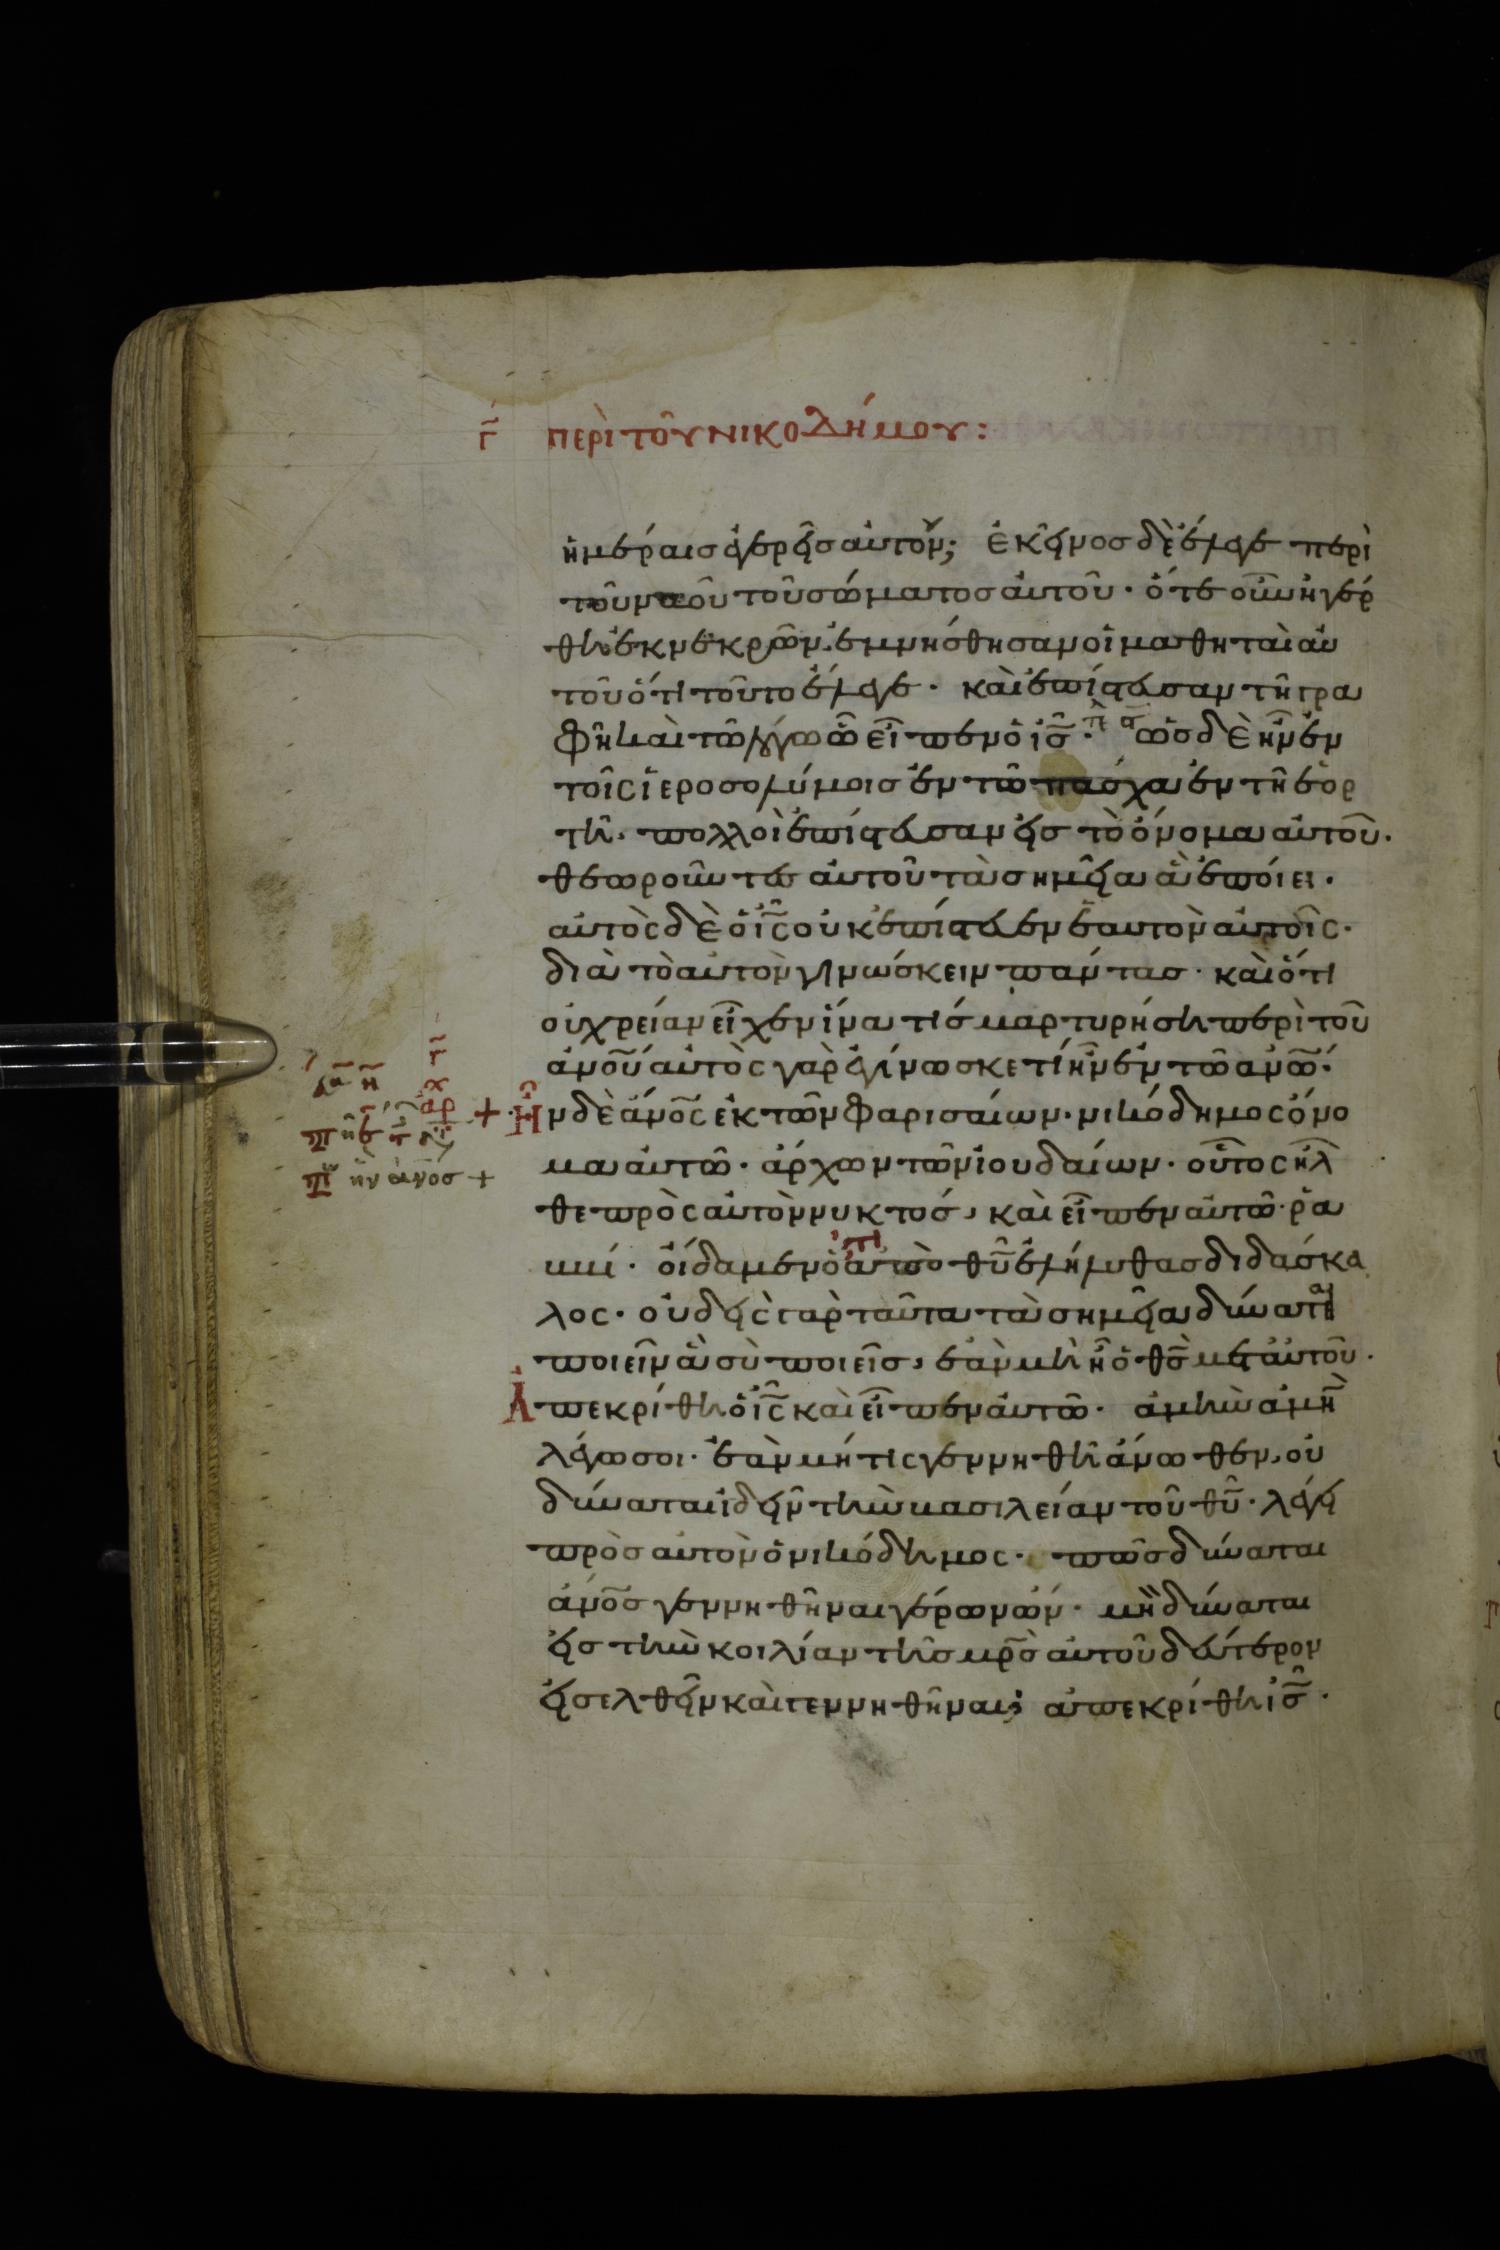 γ̄ περὶ τοῦ νικοδήμου:
ἡμέραις ἐγερεῖς αὐτόν; ἐκεῖνος δὲ ἔλεγε περὶ
τοῦ ναοῦ τοῦ σώματος αὐτοῦ· ὅτε οὖν ἠγέρ
θη ἐκ νεκρῶν· ἐμνήσθησαν οἱ μαθηταὶ αὐ
τοῦ ὅτι τοῦτο ἔλεγε· καὶ ἐπίστευσαν τῆ γρα
φῆ καὶ τῶ λόγω ὧ εἶπεν ὁ ις̄· ὡς δὲ ἦν ἐν
τοῖς ἱεροσολύμοις ἐν τῶ πάσχα ἐν τῆ ἑορ
τῆ, πολλοὶ ἐπίστευσαν εἰς τὸ ὄνομα αὐτοῦ·
θεωροῦντες αὐτοῦ τὰ σημεῖα ἃ ἐποίει·
αὐτὸς δὲ ὁ ις̄ οὐκ ἐπίστευεν ἑαυτὸν αὐτοῖς·
διὰ τὸ αὐτὸν γινώσκειν πάντας· καὶ ὅτι
οὐ χρείαν εἶχεν ἵνα τὶς μαρτυρήση περὶ τοῦ
ἀνο̄υ· αὐτὸς γὰρ ἐγίνωσκε τί ἦν ἐν τῶ ἀνω̄·
+ Ἦν δὲ ἄνο̄ς ἐκ τῶν φαρισαίων· νικόδημος ὄνο
μα αὐτῶ· ἄρχων τῶν ἰουδαίων· οὗτος ἦλ
θε πρὸς αὐτὸν νυκτός, καὶ εἶπεν αὐτῶ· ῥα
ββί· οἴδαμεν ὅτι ἀπὸ θῡ ἐλήλυθας διδάσκα
λος· οὐδεὶς γὰρ ταῦτα τὰ σημεῖα δύναται
ποιεῖν ἃ σὺ ποιεῖς, ἐὰν μὴ ἦ ὁ θς̄ μετ αὐτοῦ·
Ἀπεκρίθη ὁ ις̄ καὶ εἶπεν αὐτῶ· ἀμὴν ἀμὴν
λέγω σοι· ἐὰν μή τις γεννηθῆ ἄνωθεν, οὐ
δύναται ἰδεῖν τὴν βασιλείαν τοῦ θῡ· λέγει
πρὸς αὐτὸν ὁ νικόδημος· πῶς δύναται
ἄνο̄ς γεννηθῆναι γέρων ὤν· μὴ δύναται
εἰς τὴν κοιλίαν τῆς μρ̄ς αὐτοῦ δεύτερον
εἰσελθεῖν καὶ γεννηθῆναι; ἀπεκρίθη ις̄·
ἦν ἄνο̄ς +